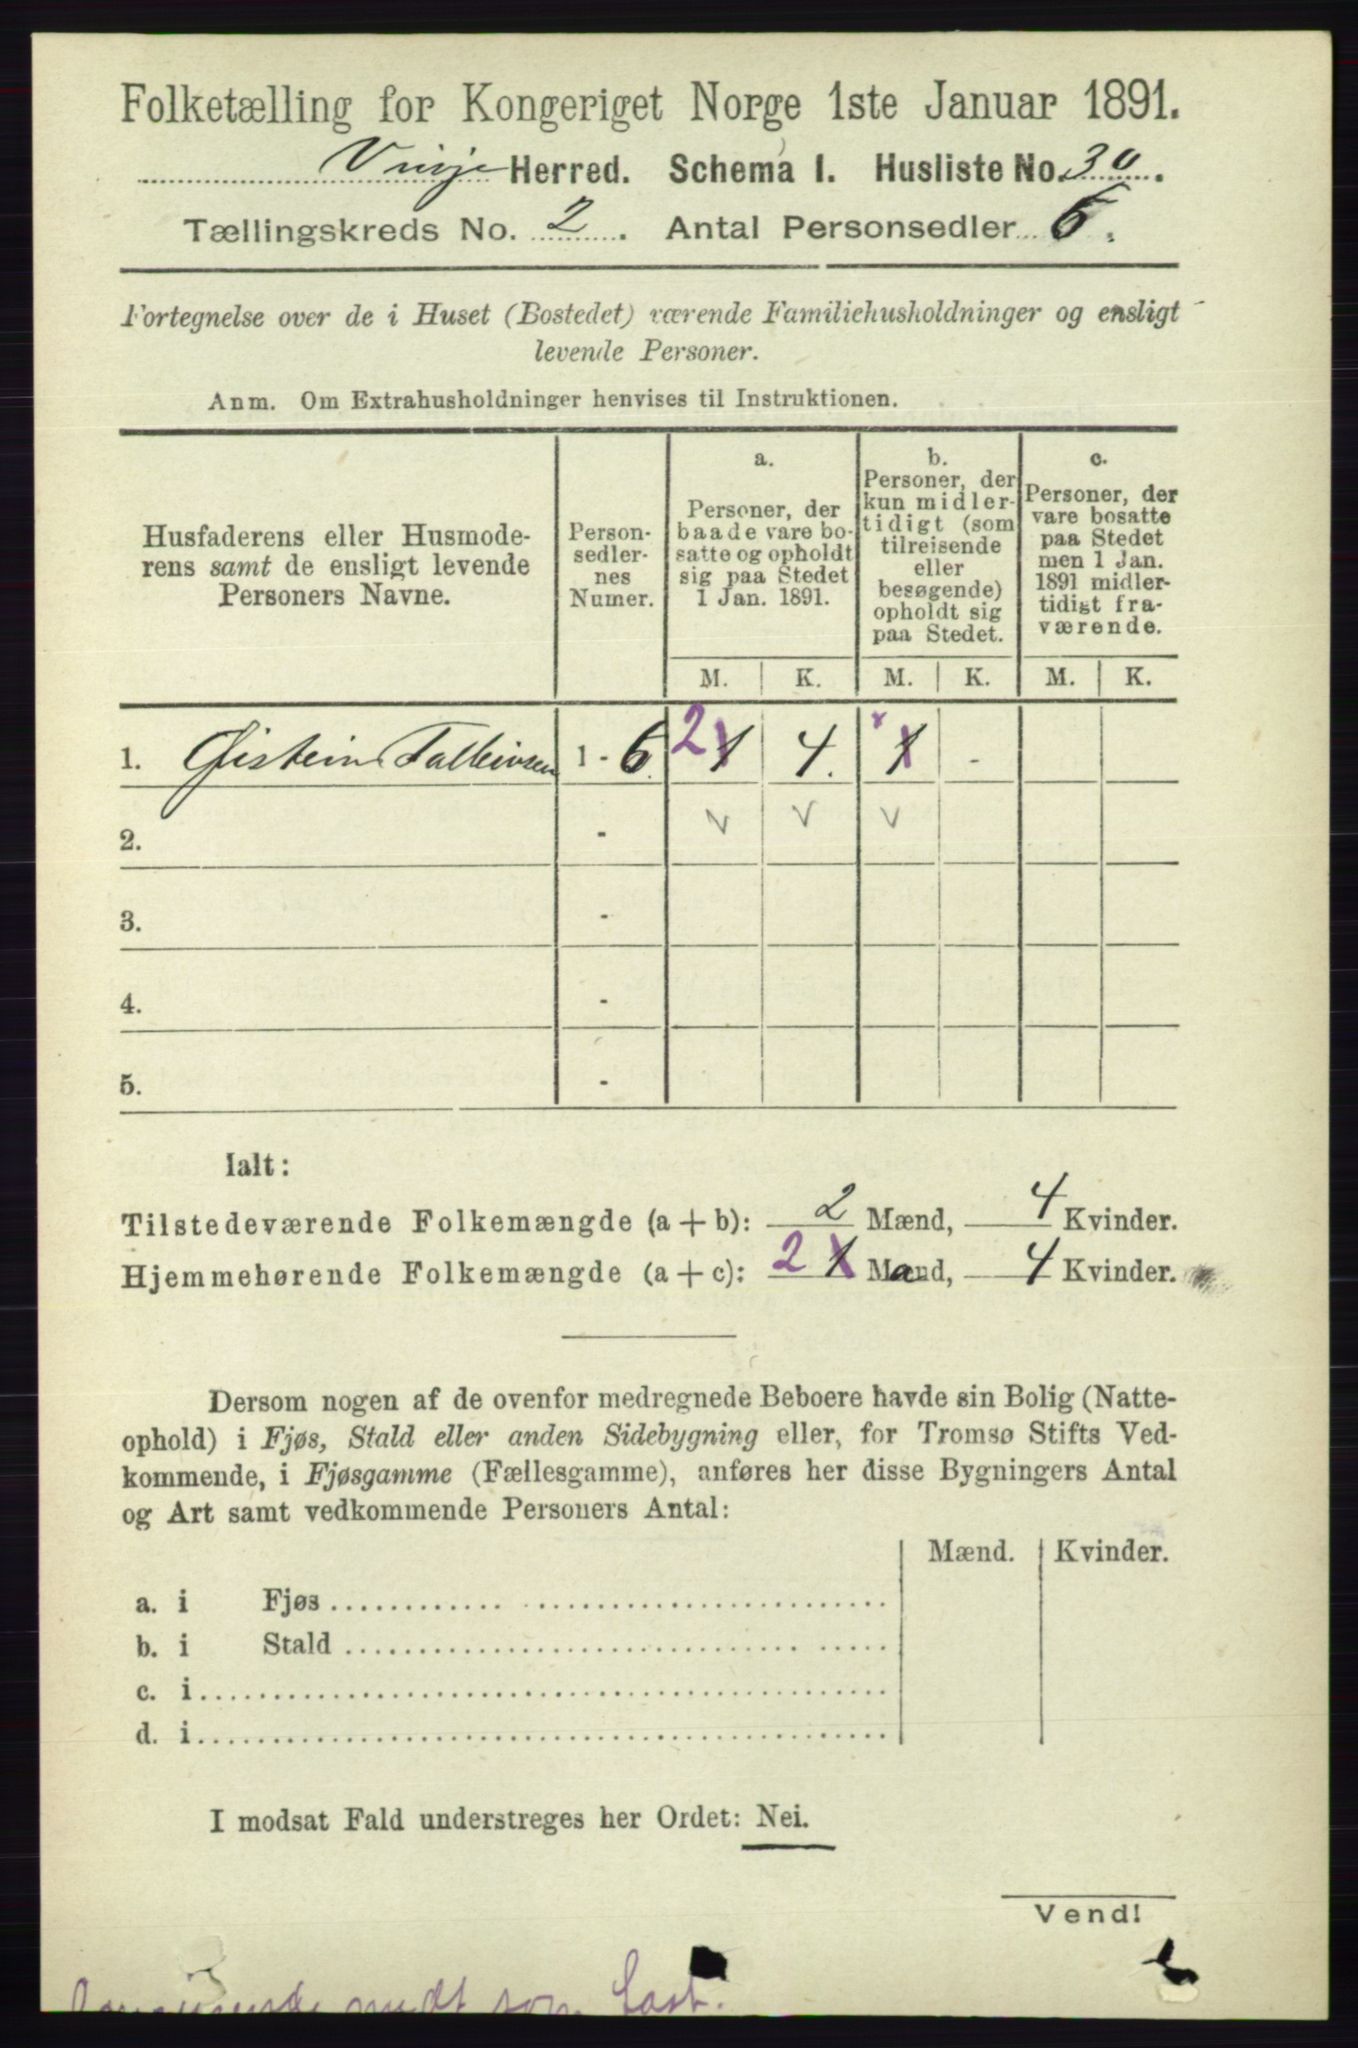 Folketælling for Kongeriget Norge 1ste Januar 1891.
Vinje Herred. Schema I. Husliste No. 30.
Tællingskreds No. 2. Antal Personsedler 6.
Fortegnelse over de i Huset (Bostedet) værende Familiehusholdninger og ensligt
levende Personer.
Anm. Om Extrahusholdninger henvises til Instruktionen.
Husfaderens eller Husmode-
rens samt de ensligt levende
Personers Navne.
Person-
sedler-
nes
Numer.
a.
Personer, der
baade vare bo-
satte og opholdt
sig paa Stedet
1 Jan. 1891.
b.
Personer, der
kun midler-
tidigt (som
tilreisende
eller
besøgende)
opholdt sig
paa Stedet.
c.
Personer, der
vare bosatte
paa Stedet
men 1 Jan.
1891 midler-
tidigt fra-
værende.
M. K. M. K. M. K.
1. Øistein Talleivsen 1 - 6. 2 1 4. x 1 -
2. - v v v
3. -
4. -
5. -
Ialt:
Tilstedeværende Folkemængde (a + b): 2 Mænd, 4 Kvinder.
Hjemmehørende Folkemængde (a + c): 2 1 Mand, 4 Kvinder.
Dersom nogen af de ovenfor medregnede Beboere havde sin Bolig (Natte-
ophold) i Fjøs, Stald eller anden Sidebygning eller, for Tromsø Stifts Ved-
kommende, i Fjøsgamme (Fællesgamme), anføres her disse Bygningers Antal
og Art samt vedkommende Personers Antal:
Mænd. Kvinder.
a. i Fjøs
b. i Stald
c. i
d. i
I modsat Fald understreges her Ordet: Nei.
Vend!
som